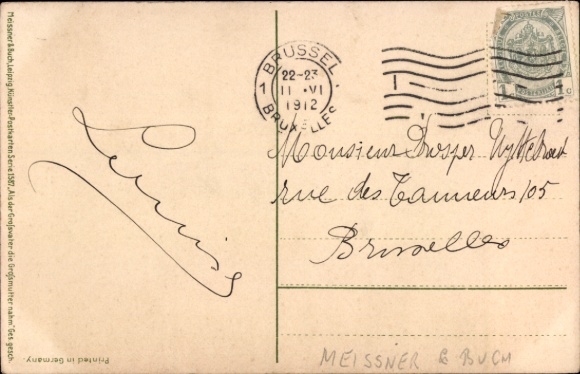 Meissner & Buch, Leipzig. Künstler-Postkarten Serie 1587. „Als der Großvater die Großmutter nahm" Ges. gesch.
BRUSSEL
1
22-23
11 VI
1912
BRUXELLES
1 1c
Monsieur Prosper
rue des Tanneurs 105
Bruxelles
Printed in Germany.
MEISSNER & BUCH